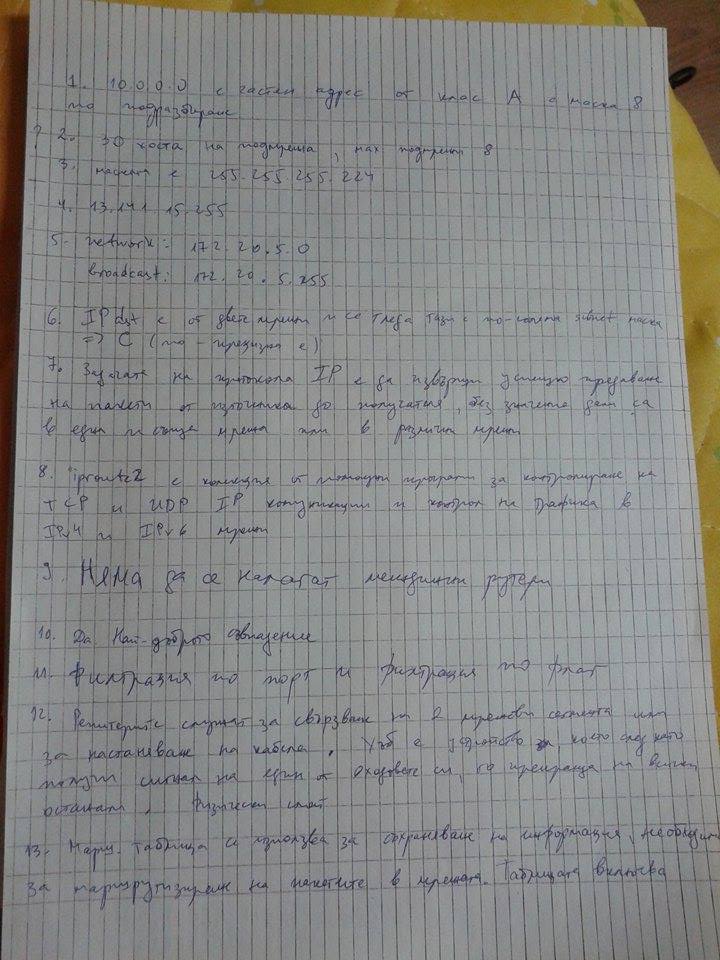 1. 10.0.0.0 е частен адрес от клас А с маска 8
по подразбиране
? 2. 30 хоста на подмрежа, мах подмрежи 8
3. маската е 255.255.255.224
4. 13.141.15.255
5. network: 172.20.5.0
broadcast: 172.20.5.255
6. IP dst е от двете мрежи и се гледа тази с по-голяма subnet маска
=> C (по-прецизна е)
7. Задачата на протокола IP е да извърши успешно предаване
на пакети от източника до получателя, без значение дали са
в една и съща мрежа или в различни мрежи
8. iproute2 е колекция от помощни програми за контролиране на
TCP и UDP IP комуникации и контрол на трафика в
IPv4 и IPv6 мрежи
9. Няма да се налагат междинни рутери
10. Да. Най-доброто съвпадение
11. Филтрация по порт и филтрация по флаг
12. Репитерите служат за свързване на 2 мрежови сегмента или
за наставяване на кабела. Хъб е устройство, което след като
получи сигнал на един от входовете си, го препраща на всички
останали. Физически слой
13. Марш. таблица се използва за съхраняване на информация,
за маршрутизиране на пакетите в мрежата. Таблицата включва